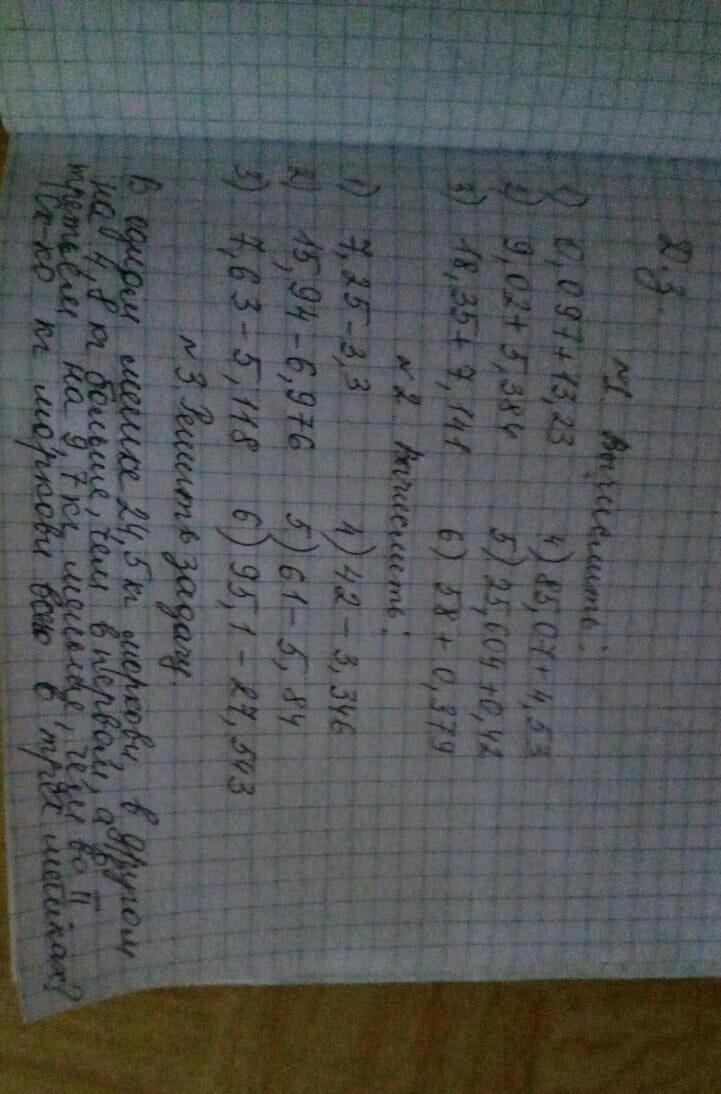 Д.з.
№1. Вычислить:
1) 0,097+13,23 4) 85,07+4,53
2) 9,02+5,384 5) 25,604+0,42
3) 18,35+7,141 6) 58+0,379
№2 Вычислить:
1) 7,25-3,3 4) 42-3,346
2) 15,94-6,976 5) 61-5,84
3) 7,63-5,118 6) 95,1-27,543
№3 Решить задачу.
В одном мешке 24,5 кг моркови в другом
на 4,8 кг больше, чем в первом, а в
третьем на 9,7 кг меньше, чем во II
Ск-ко кг моркови было в трёх мешках?